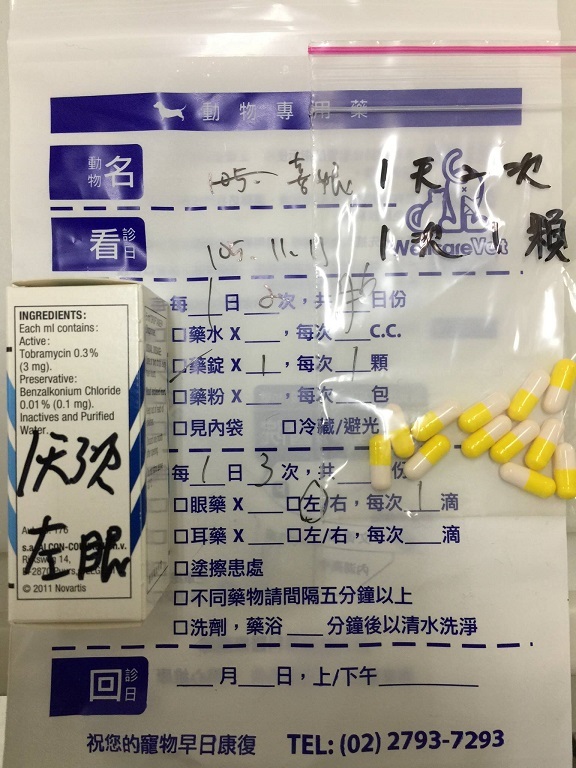 動物專用藥
動物名
1天2次
1次1顆
WeCareVet
看診日
105.11.11
每1日2次，共 日份
□藥水 X ___，每次___C.C.
□藥錠 X 1，每次1顆
□藥粉 X ___，每次___包
□見內袋 □冷藏/避光
每1日3次，共 份
□眼藥 X ___□左/右，每次1滴
□耳藥 X ___□左/右，每次___滴
□塗擦患處
□不同藥物請間隔五分鐘以上
□洗劑，藥浴 ___分鐘後以清水洗淨
回診日
___月___日，上/下午________
祝您的寵物早日康復 TEL: (02) 2793-7293
INGREDIENTS:
Each ml contains:
Active:
Tobramycin 0.3%
(3 mg).
Preservative:
Benzalkonium Chloride
0.01% (0.1 mg).
Inactives and Purified
Water.
1天3次
左眼
© 2011 Novartis